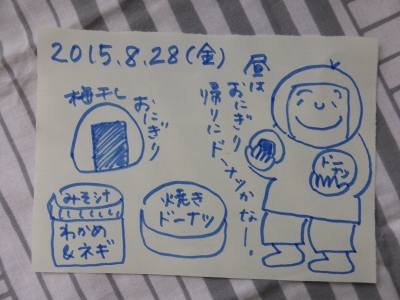 2015.8.28(金)
昼は
おにぎり
帰りにドーナツかなー!
梅干し
おにぎり
ドー
ナツ
みそ汁
わかめ
&ネギ
焼き
ドーナツ